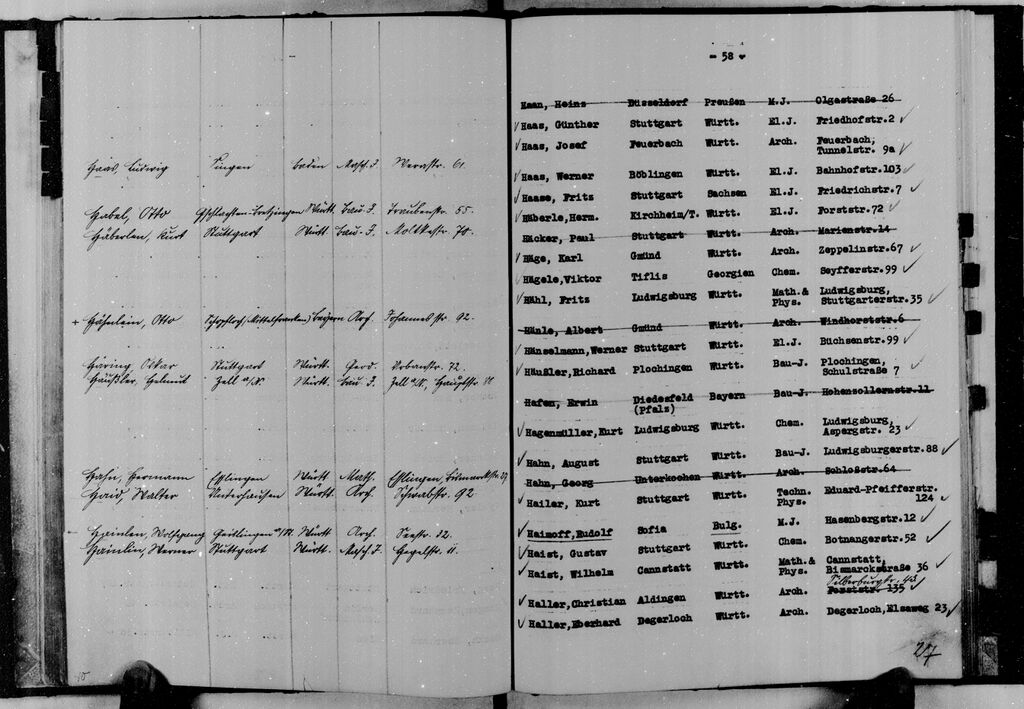 Haas, Ludwig Singen Baden Masch.I. Werastr. 61.
Habel, Otto Württ. Bau-I. Traubenstr. 55.
Häberlen, Kurt Stuttgart Württ. Bau-I. Moltkestr. 78.
+ Hähnlein, Otto Schopfloch (Mittelfranken) Bayern Arch. Johannesstr. 92.
Häring, Oskar Stuttgart Württ. Geod. Urbanstr. 72.
Häußler, Helmut Zell a/N. Württ. Bau-I. Zell a/N., Hauptstr.
Hahn, Hermann Esslingen Württ. Math. Esslingen, Bismarckstr. 29
Haid, Walter Unterhausen Württ. Arch. Schwabstr. 92.
Hainlen, Wolfgang Geislingen a/St. Württ. Arch. Seestr. 32.
Hainlin, Werner Stuttgart Württ. Masch.I. Hegelstr. 11.
- 58 -
Haan, Heinz Düsseldorf Preußen M.J. Olgastraße 26
✓ Haas, Günther Stuttgart Württ. El.J. Friedhofstr.2 ✓
✓ Haas, Josef Feuerbach Württ. Arch. Feuerbach,
Tunnelstr. 9a ✓
✓ Haas, Werner Böblingen Württ. El.J. Bahnhofstr.103 ✓
✓ Haase, Fritz Stuttgart Sachsen El.J. Friedrichstr.7 ✓
✓ Häberle,Herm. Kirchheim/T. Württ. El.J. Forststr.72 ✓
Häcker, Paul Stuttgart Württ. Arch. Marienstr.14
✓ Häge, Karl Gmünd Württ. Arch. Zeppelinstr.67 ✓
✓ Hägele,Viktor Tiflis Georgien Chem. Seyfferstr.99 ✓
✓ Hähl, Fritz Ludwigsburg Württ. Math.& Ludwigsburg,
Phys. Stuttgarterstr.35 ✓
Hänle, Albert Gmünd Württ. Arch. Windhorststr.6
✓ Hänselmann,Werner Stuttgart Württ. El.J. Büchsenstr.99 ✓
✓ Häußler,Richard Plochingen Württ. Bau-J. Plochingen,
Schulstraße 7 ✓
Hafen, Erwin Diedesfeld Bayern Bau-J. Hohenzollernstr.11
(Pfalz)
✓ Hagenmüller,Kurt Ludwigsburg Württ. Chem. Ludwigsburg,
Aspergstr. 23 ✓
✓ Hahn, August Stuttgart Württ. Bau-J. Ludwigsburgerstr.88 ✓
Hahn, Georg Unterkochen Württ. Arch. Schloßstr.64
✓ Hailer, Kurt Stuttgart Württ. Techn. Eduard-Pfeifferstr.
Phys. 124 ✓
✓ Haimoff,Rudolf Sofia Bulg. M.J. Hasenbergstr.12 ✓
✓ Haist, Gustav Stuttgart Württ. Chem. Botnangerstr.52 ✓
✓ Haist, Wilhelm Cannstatt Württ. Math.& Cannstatt,
Phys. Bismarckstraße 36 ✓
Silberburgstr. 43
✓ Haller,Christian Aldingen Württ. Arch. Forststr. 135 ✓
✓ Haller,Eberhard Degerloch Württ. Arch. Degerloch,Elsaweg 23 ✓
27